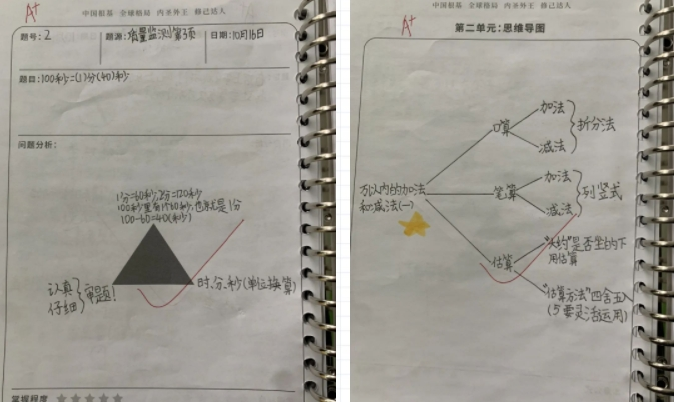 A+
中国根基 全球格局 内圣外王 修己达人
题号：2
题源：质量监测第3页
日期：10月16日
题目：100秒=(1)分(40)秒
问题分析：
1分=60秒，2分=120秒
100秒里有1个60秒，也就是1分
100-60=40(秒)
认真
仔细
审题！
时、分、秒(单位换算)
掌握程度 ★★★★★
A+
中国根基 全球格局 内圣外王 修己达人
第二单元：思维导图
万以内的加法
和减法(一)
口算
加法
减法
拆分法
笔算
加法
减法
列竖式
估算
"大约"是否坐的下
用估算
"估算方法"四舍五入
(5要灵活运用)